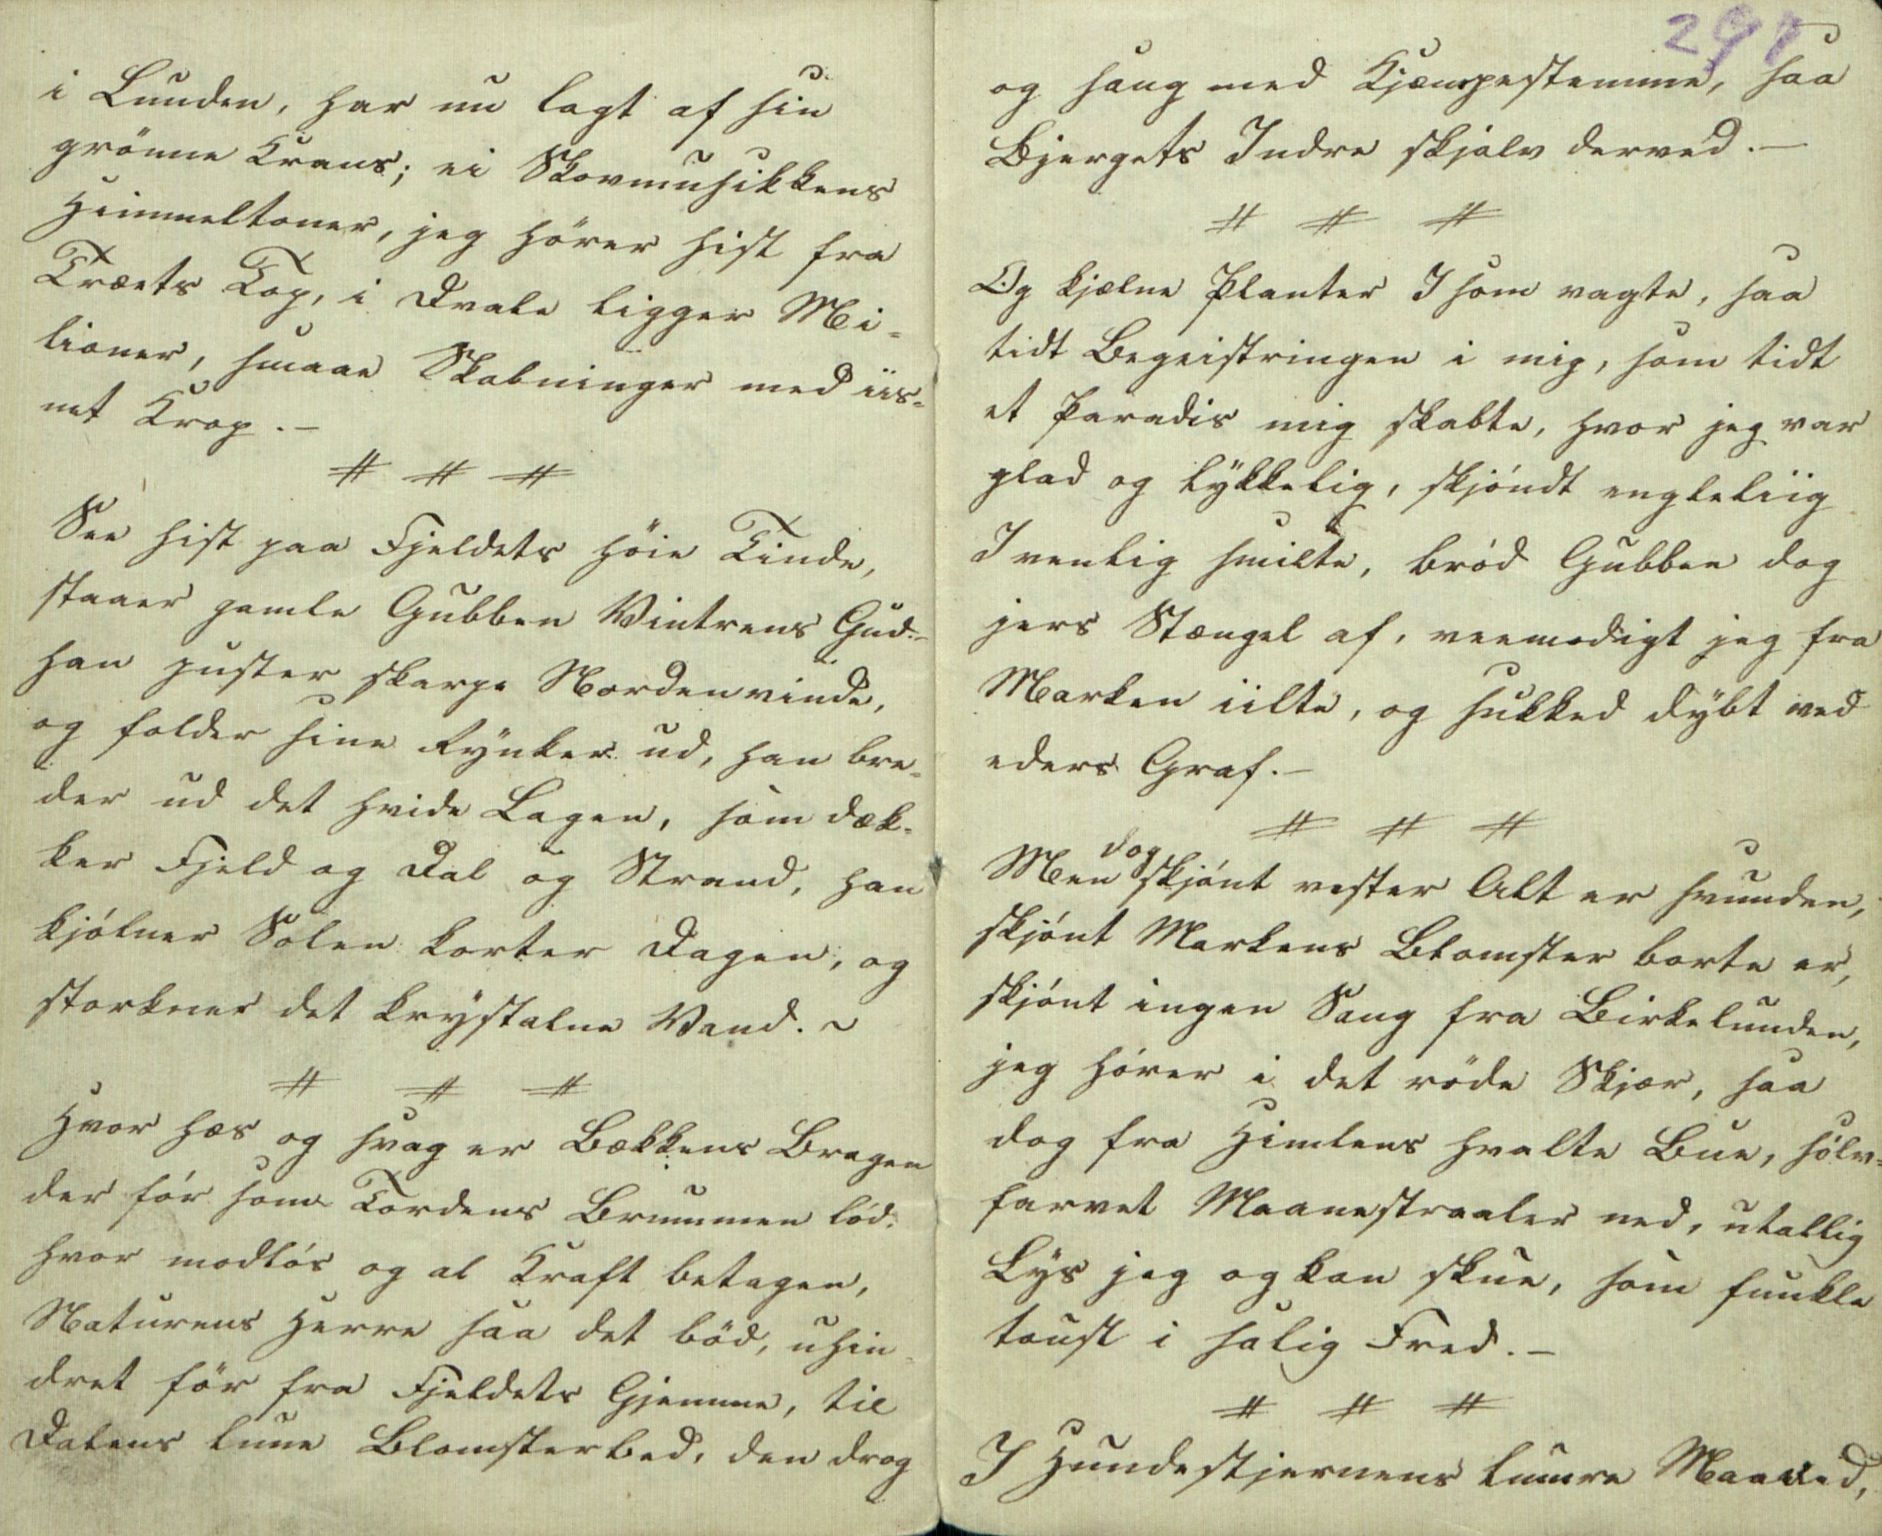 i Lunden, har nu lagt af sin
grönne Krans; ei Skovmusikkens
Himmeltoner, jeg hörer hist fra
Træets Top, i Dvale ligger Mi-
lioner, smaae Skabninger med iis-
net Krop.-
# # #
See hist paa Fjeldets höie Tinde,
staaer gamle Gubben Vintrens Gud.-
han puster skarpe Nordenvinde,
og folder sine Rynker ud, han bre-
der ud det hvide Lagen, som dæk-
ker Fjeld og Dal og Strand, han
kjólner Solen korter Dagen, og
storkner det krystalne Vand. ~
# # #
Hvor hæs og svag er Bækkens Bragen
der fór som Tordens Brummen lód.
hvor modlós og al Kraft betagen,
Naturens Herre saa det böd, uhin-
dret för fra Fjeldets Gjemme, til
Dalens lune Blomsterbed, den drog
297
og sang med Kjæmpestemme, saa
Bjergets Indre skjalv derved.-
# # #
Og kjælne Planter I som vagte, saa
tidt Begeistringen i mig, som tidt
et Paradis mig skabte, hvor jeg var
glad og lykkelig, skjóndt engleliig
I venlig smilte, bród Gubben dog
jers Stængel af, veemodigt jeg fra
Marken iilte, og sukked dybt ved
eders Graf.-
# # #
Men dog skjónt vester Alt er svunden,
skjónt Markens Blomster borte er,
skjónt ingen Sang fra Birkelunden,
jeg hórer i det röde Skjær, saa
dog fra Himlens hvalte Bue, sólv-
farvet Maanestraaler ned, utallig
Lys jeg og kan skue, som funkle
taust i salig Fred.-
# # #
I Hundestjernens lumre Maaned,